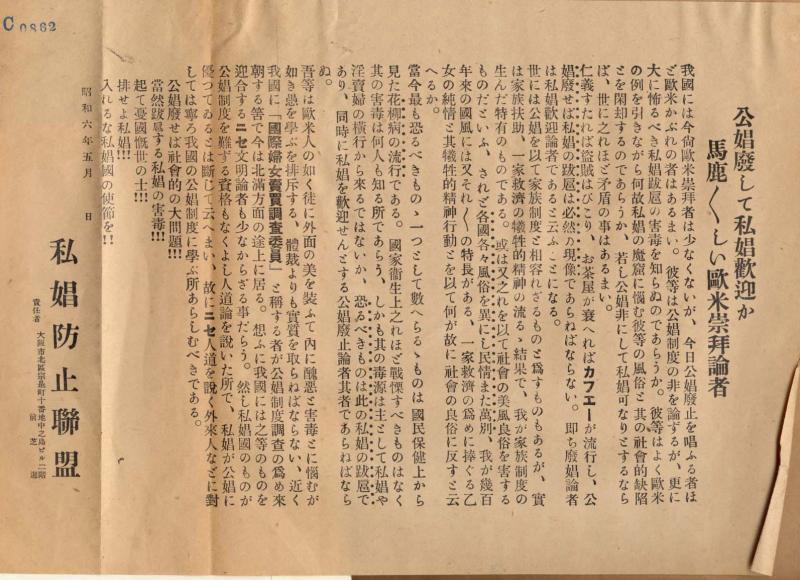 C 0862
公娼廢して私娼歡迎か
馬鹿〱しい歐米崇拜論者
我國には今尙歐米崇拜者は少なくないが、今日公娼廢止を唱ふる者ほ
ど歐米かぶれの者はあるまい。彼等は公娼制度の非を論ずるが、更に
大に怖るべき私娼跋扈の害毒を知らぬのであらうか。彼等はよく歐米
の例を引きながら何故私娼の魔窟に惱む彼等の風俗と其の社會的缺陷
とを閑却するのであらうか、若し公娼非にして私娼可なりとするなら
ば、世に之れほど矛盾の事はあるまい。
仁義すたれば盜賊はびこり、お茶屋が衰へればカフエーが流行し、公
娼廢せば私娼の跋扈は必然の現像であらねばならない。卽ち廢娼論者
は私娼歡迎論者であると云ふことになる。
世には公娼を以て家族制度と相容れざるものと爲すものもあるが、實
は家族扶助、一家救濟の犧牲的精神の流るゝ結果で、我が家族制度の
生んだ特有のものである。或は又之れを以て社會の美風良俗を害する
ものだといふ、されど各國各々風俗を異にし民情また萬別、我が幾百
年來の國風には又それ〲の特長がある、一家救濟の爲めに捧ぐる乙
女の純情と其犧牲的精神行動とを以て何が故に社會の良俗に反すと云
へるか。
當今最も恐るべきものゝ一つとして數へらるゝものは國民保健上から
見た花柳病の流行である。國家衞生上之れほど戰慄すべきものはなく
其の害毒は何人も知る所であらう、しかも其の毒源は主として私娼や
淫賣婦の橫行から來るではないか、恐るべきものは此の私娼の跋扈で
あり、同時に私娼を歡迎せんとする公娼廢止論者其者であらねばなら
ぬ。
吾等は歐米人の如く徒に外面の美を裝ふて內に醜惡と害毒とに惱むが
如き愚を學ぶを排斥する、體裁よりも實質を取らねばならない、近く
我國に「國際婦女賣買調査委員」と稱する者が公娼制度調査の爲め來
朝する筈で今は北滿方面の途上に居る。想ふに我國には之等のものを
迎合するニセ文明論者も少なからざる事だらう。然し私娼國のものが
公娼制度を難ずる資格もなくよし人道論を說いた所で、私娼が公娼に
優つてゐるとは斷じて云へまい、故にニセ人道を說く外來人などに對
しては寧ろ我國の公娼制度に學ぶ所あらしむべきである。
公娼廢せば社會的の大問題!!!
當然跋扈する私娼の害毒!!!
起て憂國慨世の士!!!
排せよ私娼!!!
入れるな私娼國の使節を!!
昭和六年五月 日
私娼防止聯盟
責任者
大阪市北區宗是町十番地中之島ビル二階
前芝